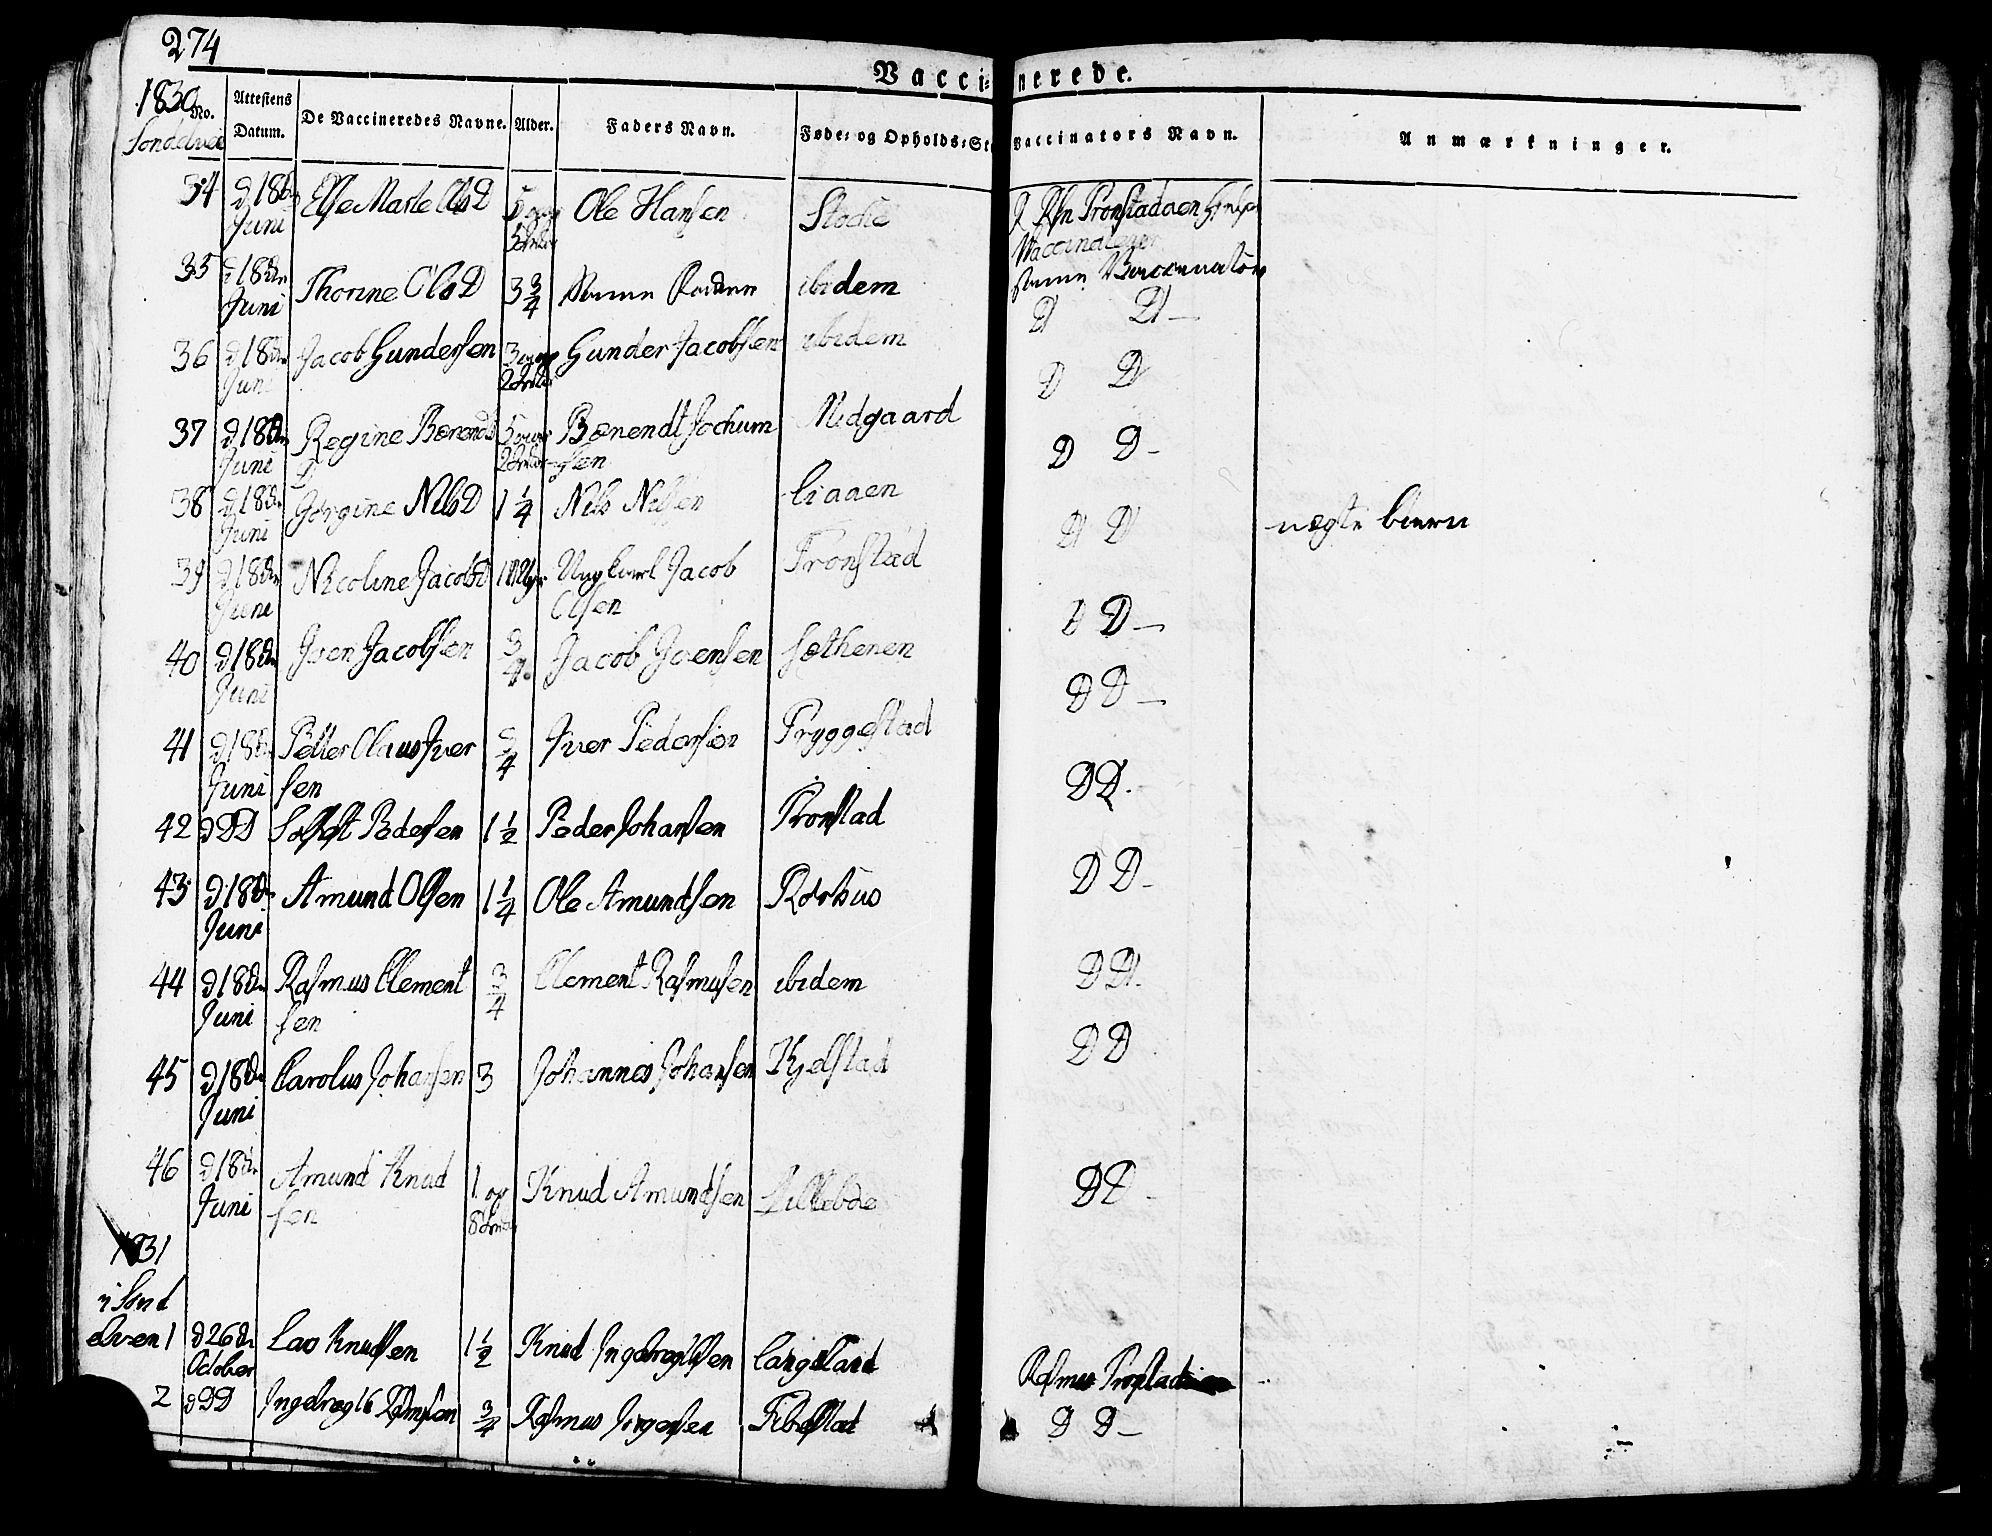 274
Vaccinerede.
1830 No.
Attestens Datum.
De Vaccineredes Navne.
Alder.
Faders Navn.
Føde- og Opholds-St
Vaccinators Navn.
Anmærkninger.
34 d 18de Juni Else Marte OlsD 5 Ole Hansen Stocke
35 d 18de Juni Thorine OlsD 3 3/4 Samme ibidem samme Vaccinateur
36 d 18de Juni Jacob Gundersen 3 Gunder Jacobsen ibidem D D
37 d 18de Juni Regine Bærends D 5 Bærendt Jochumsen Midgaard D D
38 d 18de Juni Gorgine NilsD 1 1/4 Nils Nilsen Liaaen D D
39 d 18de Juni Nicoline JacobsD Ungkarl Jacob Olsen Tronstad D D nægte
40 d 18de Juni Iven Jacobsen 3/4 Jacob Ivensen Sætherren D D
41 d 18de Juni Petter Olaus Iversen 3/4 Iver Pedersen Tryggestad D D
42 d DD Pedersen 1 1/2 Peder Johansen Tronstad D D.
43 d 18de Juni Amund Olsen 1 1/4 Ole Amundsen Rørhus D D
44 d 18de Juni Rasmus Clementsen 3/4 Clement Rasmusen ibidem D D
45 d 18de Juni Carolus Johansen 3 Johannes Johansen Kjelstad D D
46 d 18de Juni Amund Knudsen 1 og Knud Amundsen Lillebøe D D
1831
i Sønd
elven 1 d 26de October Lars Knudsen 1 1/2 Knud Ingebregtsen Langeland Rasmus
2 d DD 3/4 Rasmus Jørgensen Fibelstad D D